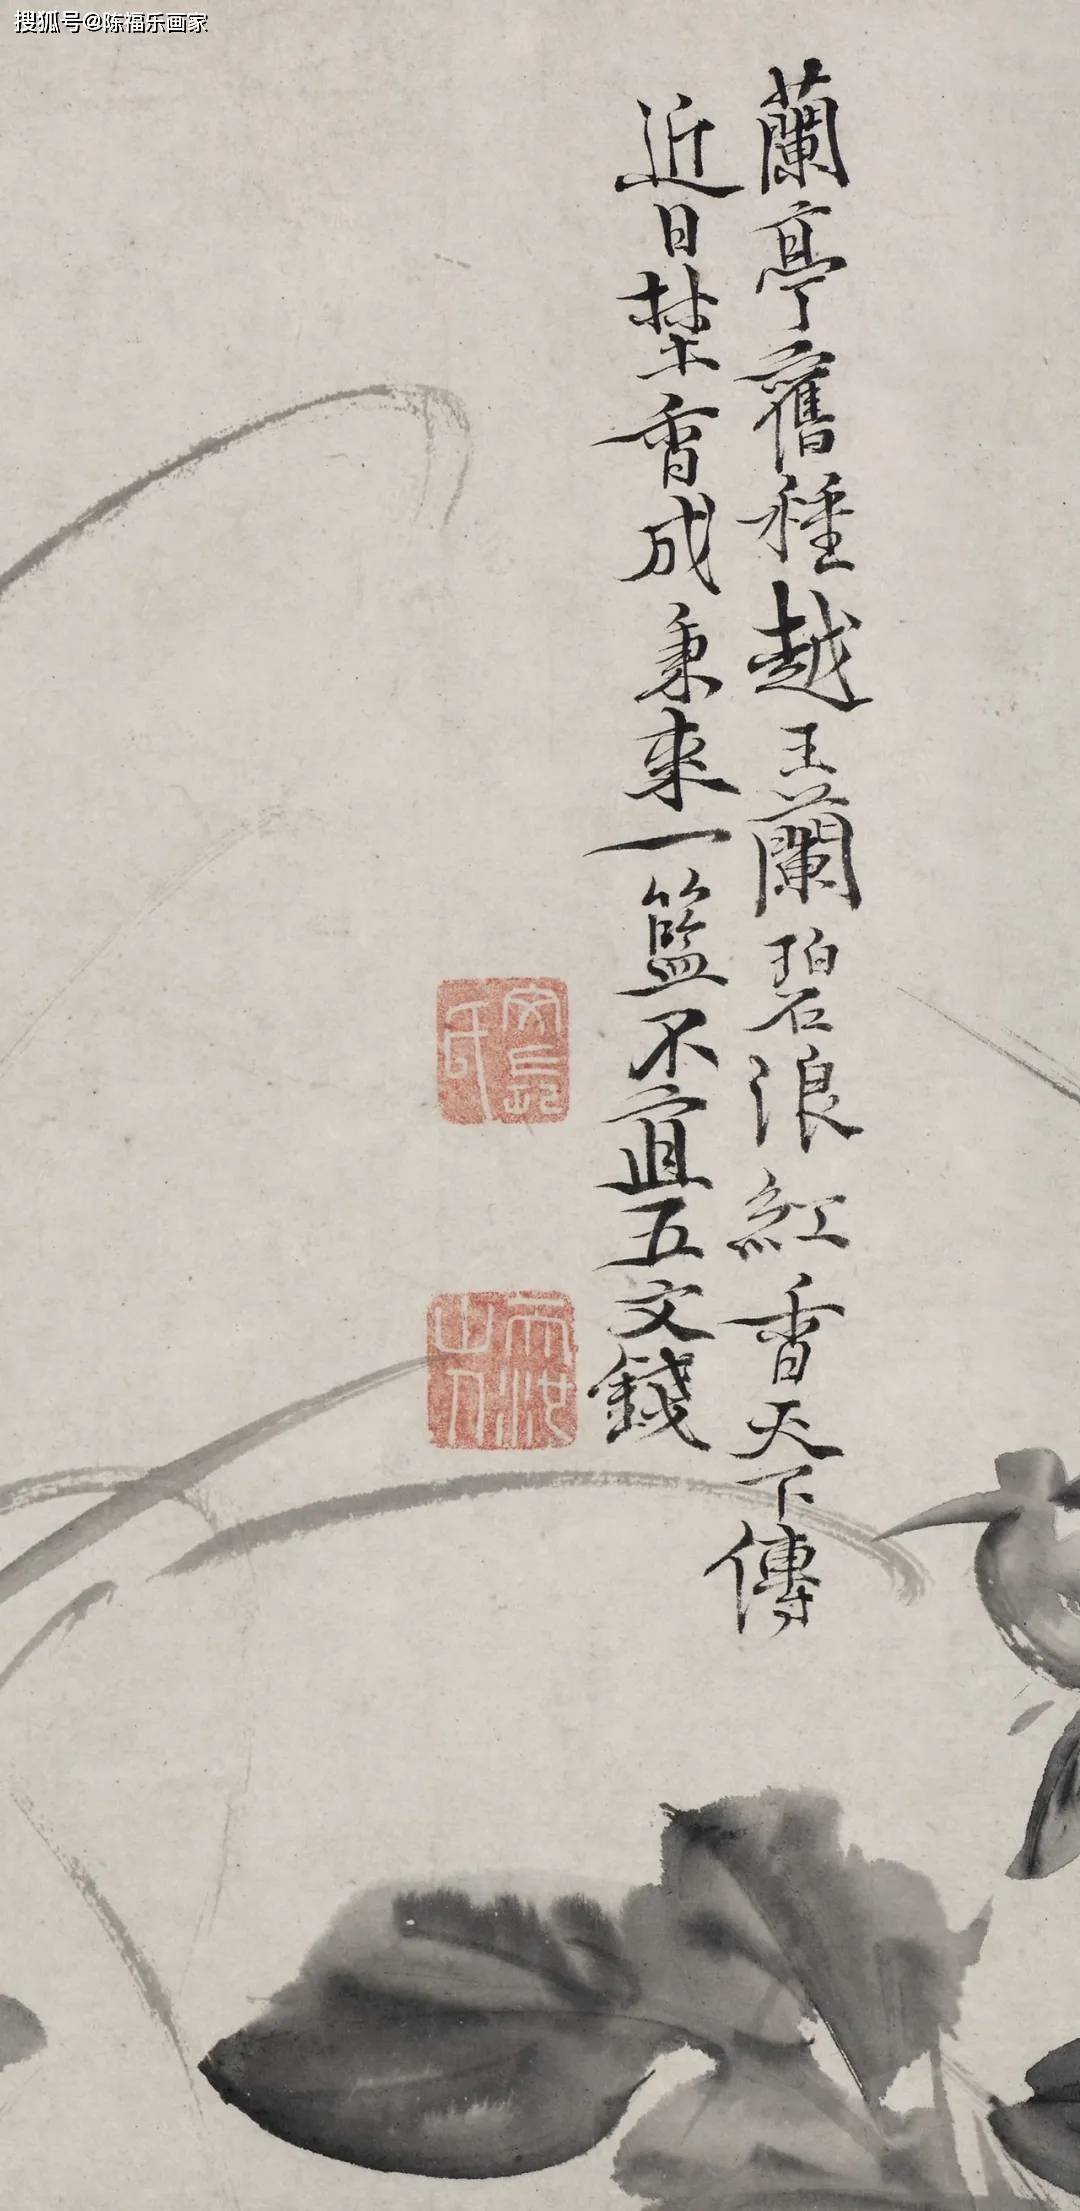 搜狐号@陈福乐画家
蘭亭舊種越王蘭碧浪紅香天下傳
近日埜香成秉束一籃不直五文錢